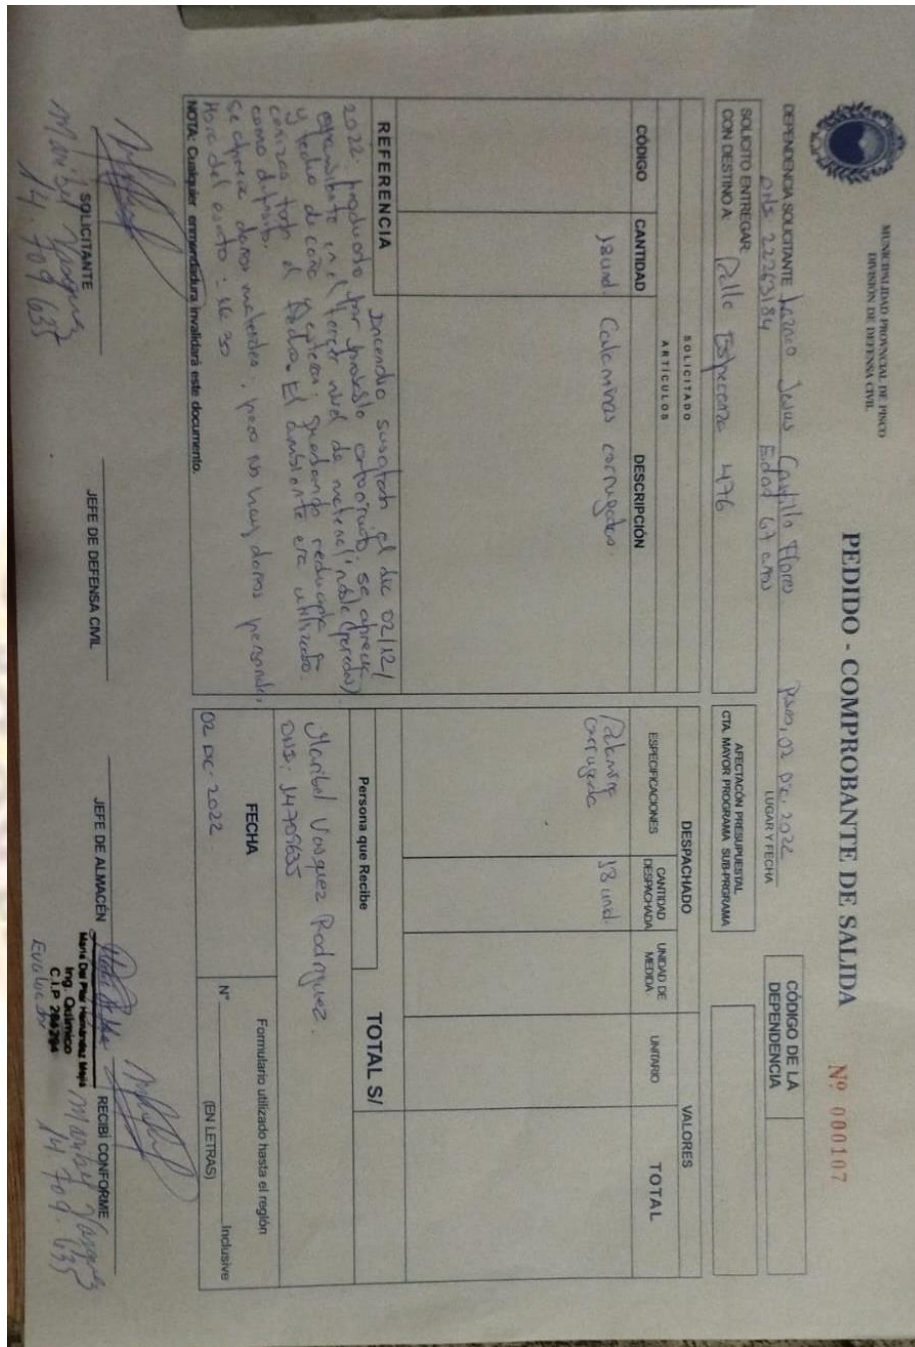 MUNICIPALIDAD PROVINCIAL DE PISCO
DIVISIÓN DE DEFENSA CIVIL
PEDIDO - COMPROBANTE DE SALIDA
Nº 000107
DEPENDENCIA SOLICITANTE Lazaro Jesus Castillo Flores
DNI 22263184 Edad 67 años
Pisco, 02 Dic. 2022
LUGAR Y FECHA
CÓDIGO DE LA DEPENDENCIA
SOLICITO ENTREGAR
CON DESTINO A: Calle Esperanza 476
AFECTACÓN PRESUPUESTAL
CTA. MAYOR PROGRAMA SUB-PRGRAMA
SOLICITADO
ARTÍCULOS
CÓDIGO CANTIDAD DESCRIPCIÓN
18 und. Calaminas corrugadas.
DESPACHADO VALORES
ESPECIFICACIONES CANTIDAD DESPACHADA UNIDAD DE MEDIDA UNITARIO TOTAL
Calamina corrugada 18 und.
REFERENCIA
Incendio suscitado el día 02/12/
2022 producto por
en el tercer nivel de material noble (paredes)
y techo de caña y esteras; quedando reducido a
cenizas todo el techo. El ambiente era utilizado
como depósito.
Se aprecia daños materiales; pero no hay daños personales,
Hora del evento: 16:30
NOTA: Cualquier enmendadura invalidará este documento.
Persona que Recibe
TOTAL S/
Maribel Vasquez Rodriguez.
DNI: 14709635
FECHA
02 Dic. 2022
Formulario utilizado hasta el reglón
N° Inclusive
(EN LETRAS)
SOLICITANTE
Maribel Vasquez
14.709.635
JEFE DE DEFENSA CIVIL
JEFE DE ALMACÉN
Ing. Químico
Evaluador
RECIBÍ CONFORME
Maribel Vasquez
14.709.635